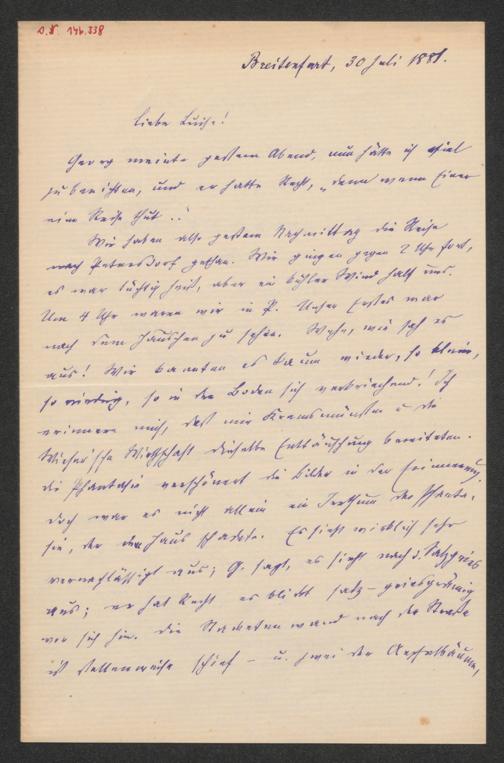 I.N. 146.338
Breitenfurt, 30 Juli 1881.
Liebe Luise!
Georg meinte gestern Abend, nun hätte ich viel
zu berichten, und er hatte Recht, „denn wenn Einer
eine Reise thut ..“
Wir haben also gestern Nachmittag die Reise
nach Petersdorf gethan. Wir gingen gegen 2 Uhr fort,
es war tüchtig heiß, aber ein kühler Wind half uns.
Um 4 Uhr waren wir in P. Unser Erstes war
nach dem Häuschen zu sehen. Wehe, wie sah es
aus! Wir kannten es kaum wieder, so klein,
so niedrig, so in den Boden sich verkriechend! Ich
erinnere mich, daß mir Kremsmünster u die
Wirthschaft dieselbe Enttäuschung bereiteten.
die Phantasie verschönert die Bilder in der Erinnerung,
doch war es nicht allein ein Irrthum der Phanta-
sie, der dem Haus schadete. Es sieht wirklich sehr
vernachlässigt aus; G. sagt, es sieht nach d.
aus; er hat Recht es blickt
vor sich hin. die Staketenwand nach der Straße
ist stellenweise schief – u. zwei der